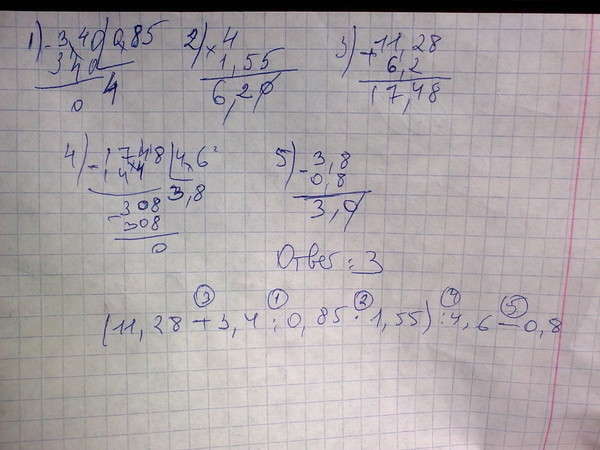 1) - 3,40 | 0,85
340
4
0
2) × 4
1,55
6,20
3) + 11,28
6,2
17,48
4) - 17,48 | 4,6
3,8
- 308
308
0
5) - 3,8
0,8
3,0
Ответ: 3
3 1 2 4 5
(11,28 + 3,4 : 0,85 · 1,55) : 4,6 - 0,8